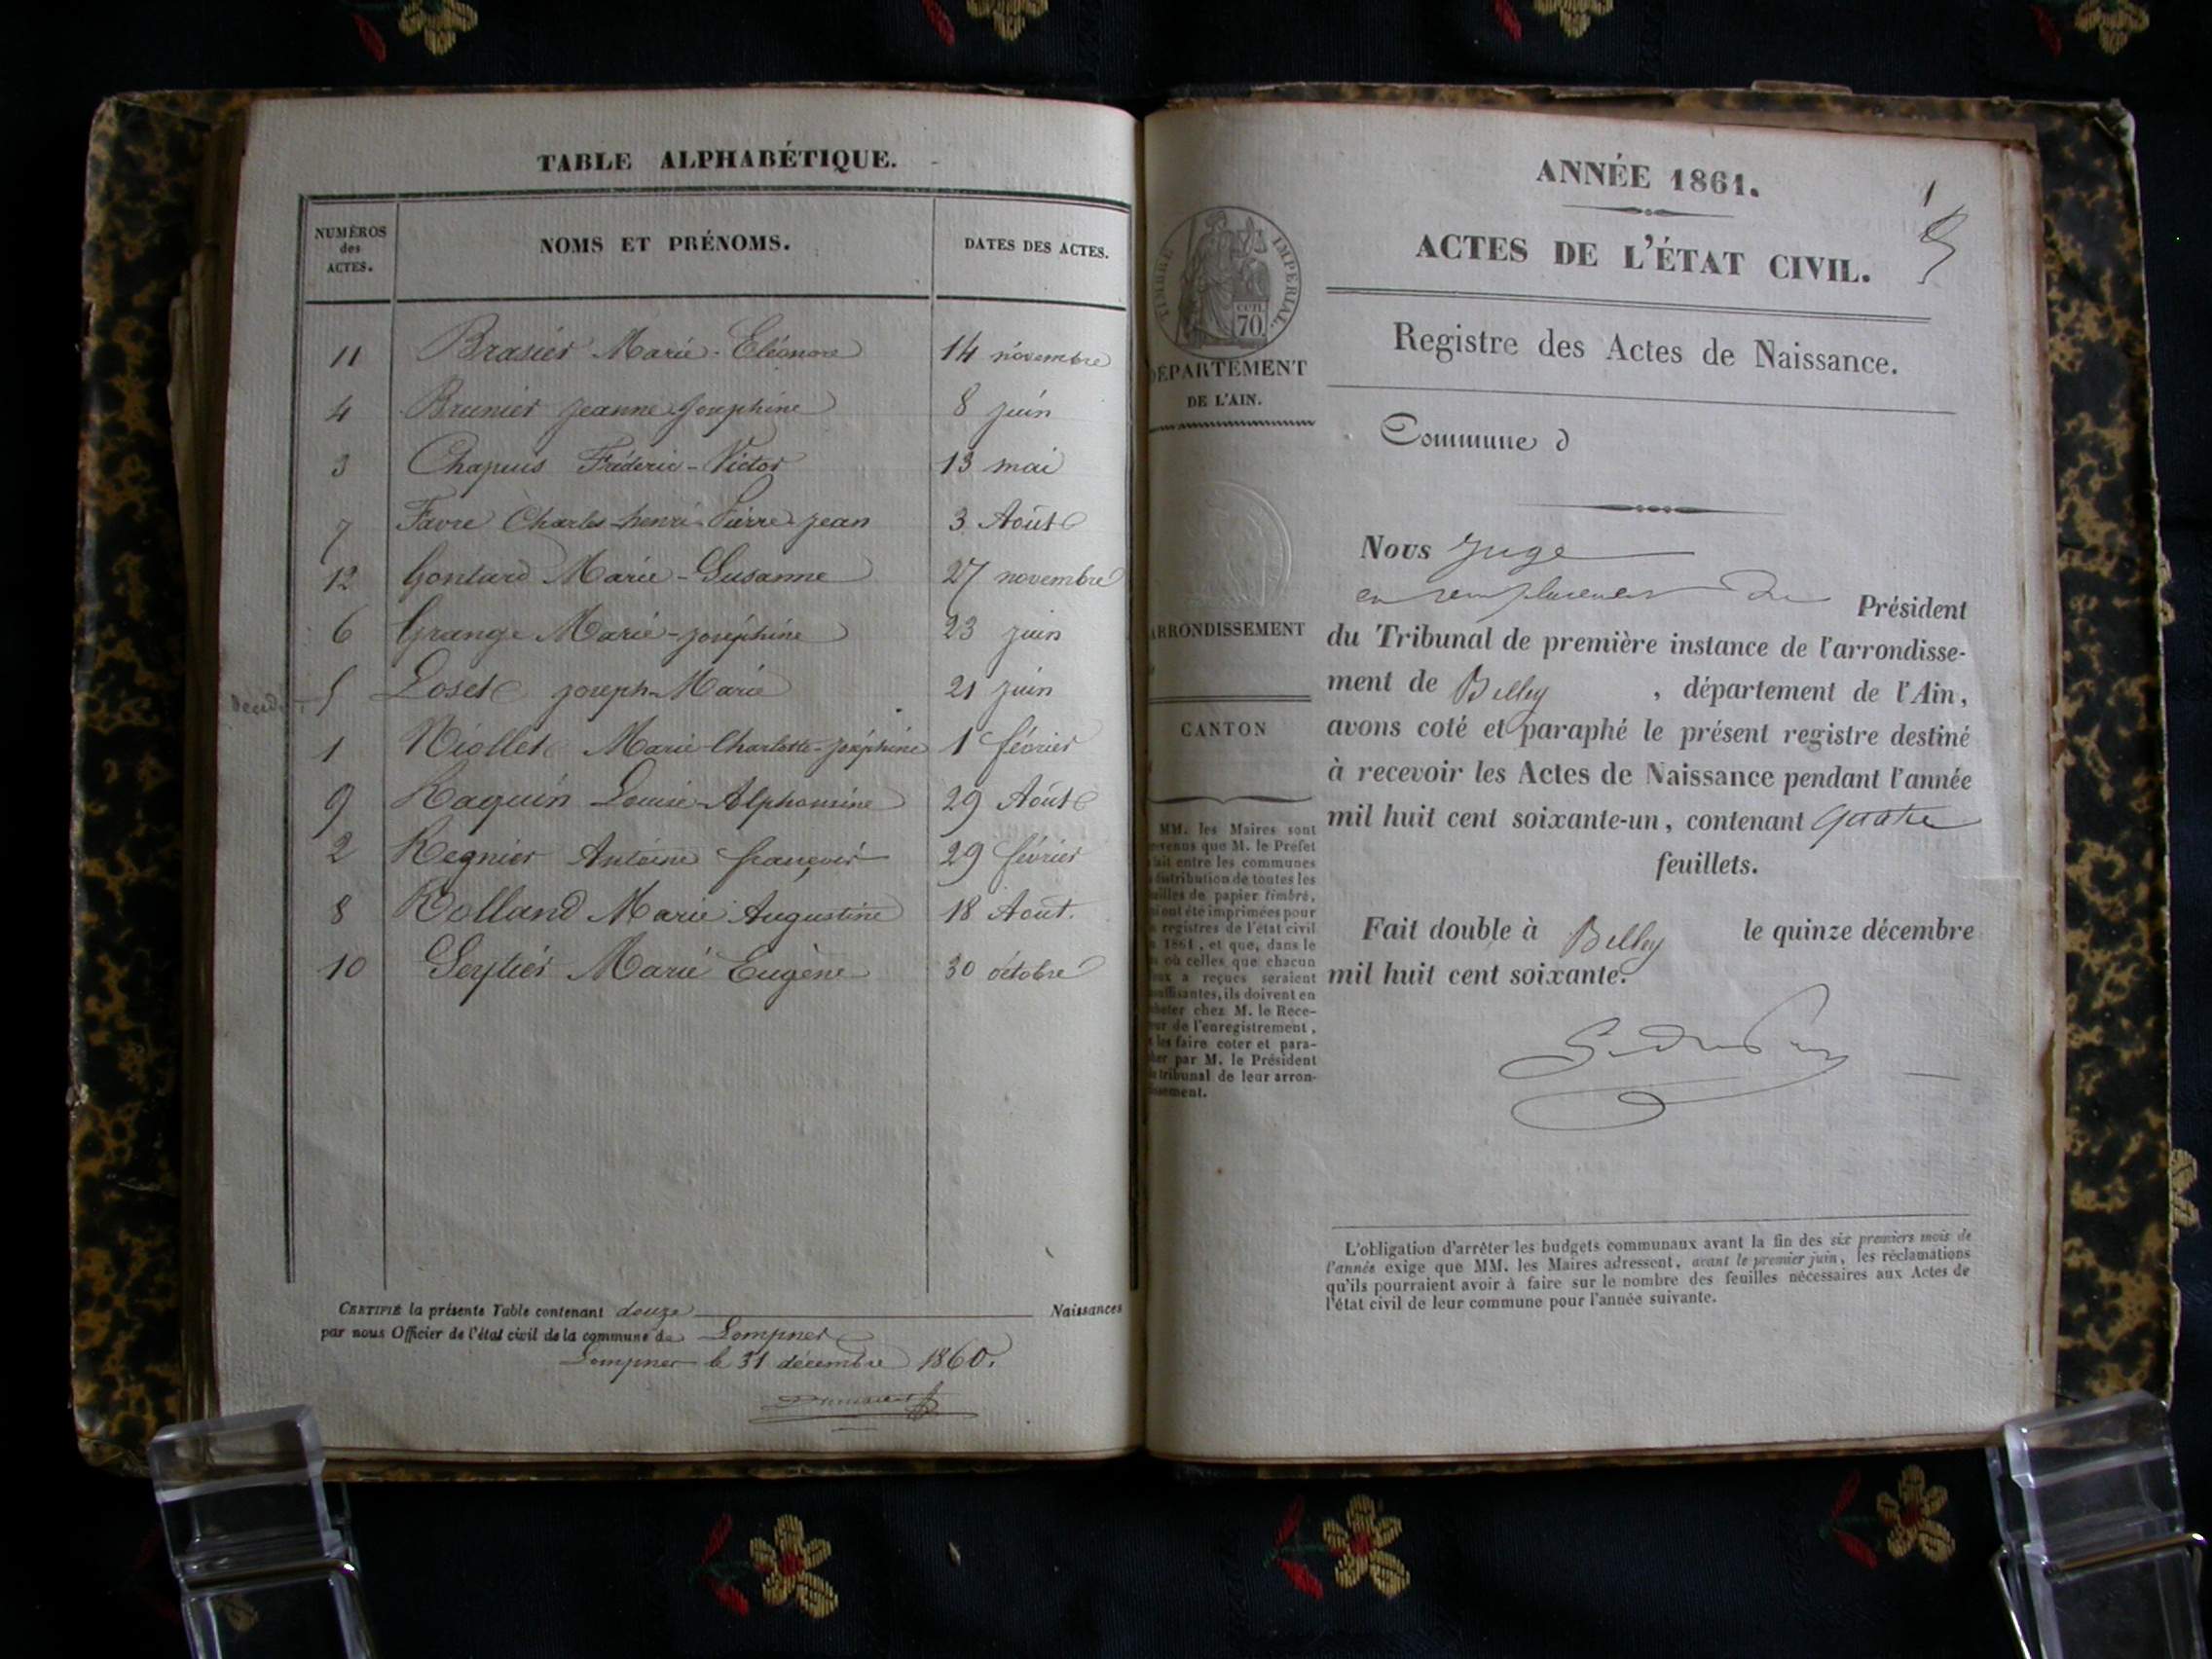 TABLE ALPHABÉTIQUE.
NUMÉROS des ACTES.
NOMS ET PRÉNOMS.
DATES DES ACTES.
11 Brasier Marie-Eléonore 14 novembre
4 Brunier Jeanne Joséphine 8 juin
3 Chapuis Fréderic-Victor 13 mai
7 Favre Charles henri Pierre jean 3 Août
12 Gontard Marie-Susanne 27 novembre
6 Grange Marie-joséphine 23 juin
5 Loset joseph-Marie 21 juin
1 Niollet Marie-Charlotte-joséphine 1 février
9 Raquin Louise Alphonsine 29 Août
2 Regnier Antoine françois 29 février
8 Rolland Marie Augustine 18 Août.
10 Seytier Marie Eugène 30 octobre
CERTIFIÉ la présente Table contenant douze Naissances
par nous Officier de l'état civil de la commune de Lompner
Lompner le 31 décembre 1860.
ANNÉE 1861.
1
ACTES DE L'ÉTAT CIVIL.
Registre des Actes de Naissance.
TIMBRE IMPÉRIAL.
CEN. 70
DÉPARTEMENT
DE L'AIN.
ARRONDISSEMENT
CANTON
MM. les Maires sont
prévenus que M. le Préfet
fait entre les communes
distribution de toutes les
feuilles de papier timbré,
qui ont été imprimées pour
registres de l'état civil
1861, et que, dans le
cas où celles que chacun
d'eux a reçues seraient
insuffisantes, ils doivent en
acheter chez M. le Rece-
veur de l'enregistrement,
les faire coter et para-
pher par M. le Président
du tribunal de leur arron-
dissement.
Commune d
Nous Juge
en remplacement du Président
du Tribunal de première instance de l'arrondisse-
ment de Belley , département de l'Ain,
avons coté et paraphé le présent registre destiné
à recevoir les Actes de Naissance pendant l'année
mil huit cent soixante-un, contenant quatre
feuillets.
Fait double à Belley le quinze décembre
mil huit cent soixante.
L'obligation d'arrêter les budgets communaux avant la fin des six premiers mois de
l'année exige que MM. les Maires adressent, avant le premier juin, les réclamations
qu'ils pourraient avoir à faire sur le nombre des feuilles nécessaires aux Actes de
l'état civil de leur commune pour l'année suivante.